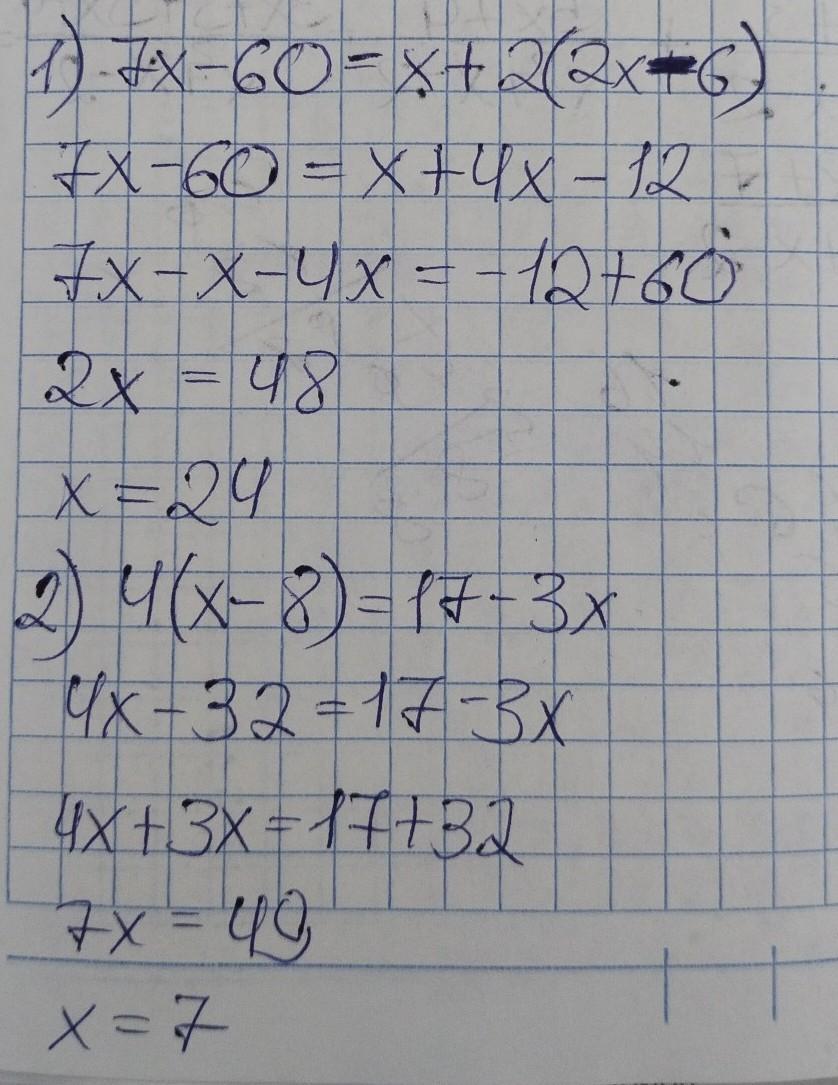 1) 7x-60=x+2(2x-6)
7x-60=x+4x-12
7x-x-4x=-12+60
2x=48
x=24
2) 4(x-8)=17-3x
4x-32=17-3x
4x+3x=17+32
7x=49
x=7